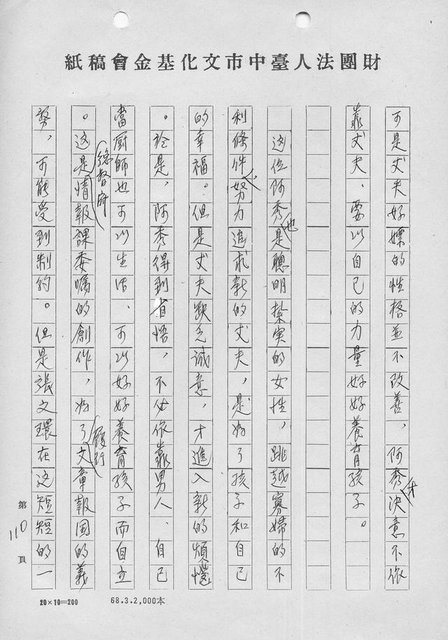 財團法人臺中市文化基金會稿紙
可是丈夫好嫖的性格並不改善，阿秀才決意不依
靠丈夫、要以自己的力量好好養育孩子。
這位阿秀也是聰明紮實的女性，跳越寡婦的不
利條件，努力追求新的丈夫，是為了孩子和自己
的幸福。但是丈夫缺乏誠意，才進入新的煩惱
。於是，阿秀得到省悟，不必依靠男人、自己
當厨師也可以生活、可以好好養育孩子而自立
。這是總督府情報課委嘱的創作，為了履行文章報國的義
務，可能受到制約。但是張文環在這短短的一
第110頁
20×10=200
68.3.2,000本